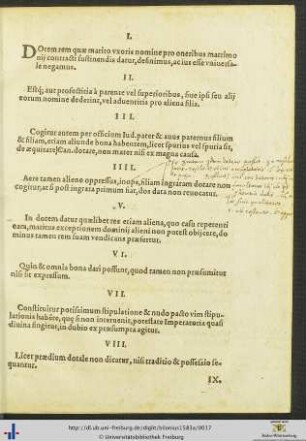 I.
Dotem rem quæ marito vxoris nomine pro oneribus matrimo
nij contracti sustinendis datur, definimus, ac ius esse vniuersa-
le negamus.
II.
Estq; aut profectitia à parente vel superioribus, siue ipsi seu alij
eorum nomine dederint, vel aduentitia pro aliena filia.
III.
Cogitur autem per officium Iud. pater & auus paternus filium
& filiam, etiam aliunde bona habentem, licet spurius vel spuria sit,
de æquitate Can. dotare, non mater nisi ex magna causa.
IIII.
Aere tamen alieno oppressus, inops, filiam ingratam dotare non
cogitur, at si post ingrata primum fiat, dos data non reuocatur.
V.
In dotem datur quælibet res etiam aliena, quo casu repetenti
eam, maritus exceptionem dominij alieni non potest obijcere, do
minus tamen rem suam vendicans præfertur.
VI.
Quin & omnia bona dari possunt, quod tamen non præsumitur
nisi sit expressum.
VII.
Constituitur potissimum stipulatione & nodo pacto vim stipu-
lationis habente, quę si non interuenit, potestate Imperatoria quasi
diuina fingitur, in dubio ex præsumpta agitur.
VIII.
Licet prædium dotale non dicatur, nisi traditio & possessio se-
quantur.
IX.
http://dl.ub.uni-freiburg.de/diglit/stionius1583a/0037
© Universitätsbibliothek Freiburg
Baden-Württemberg